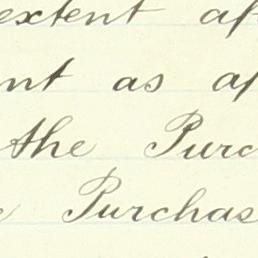 extent af
nt as af
the Purc
Purchas